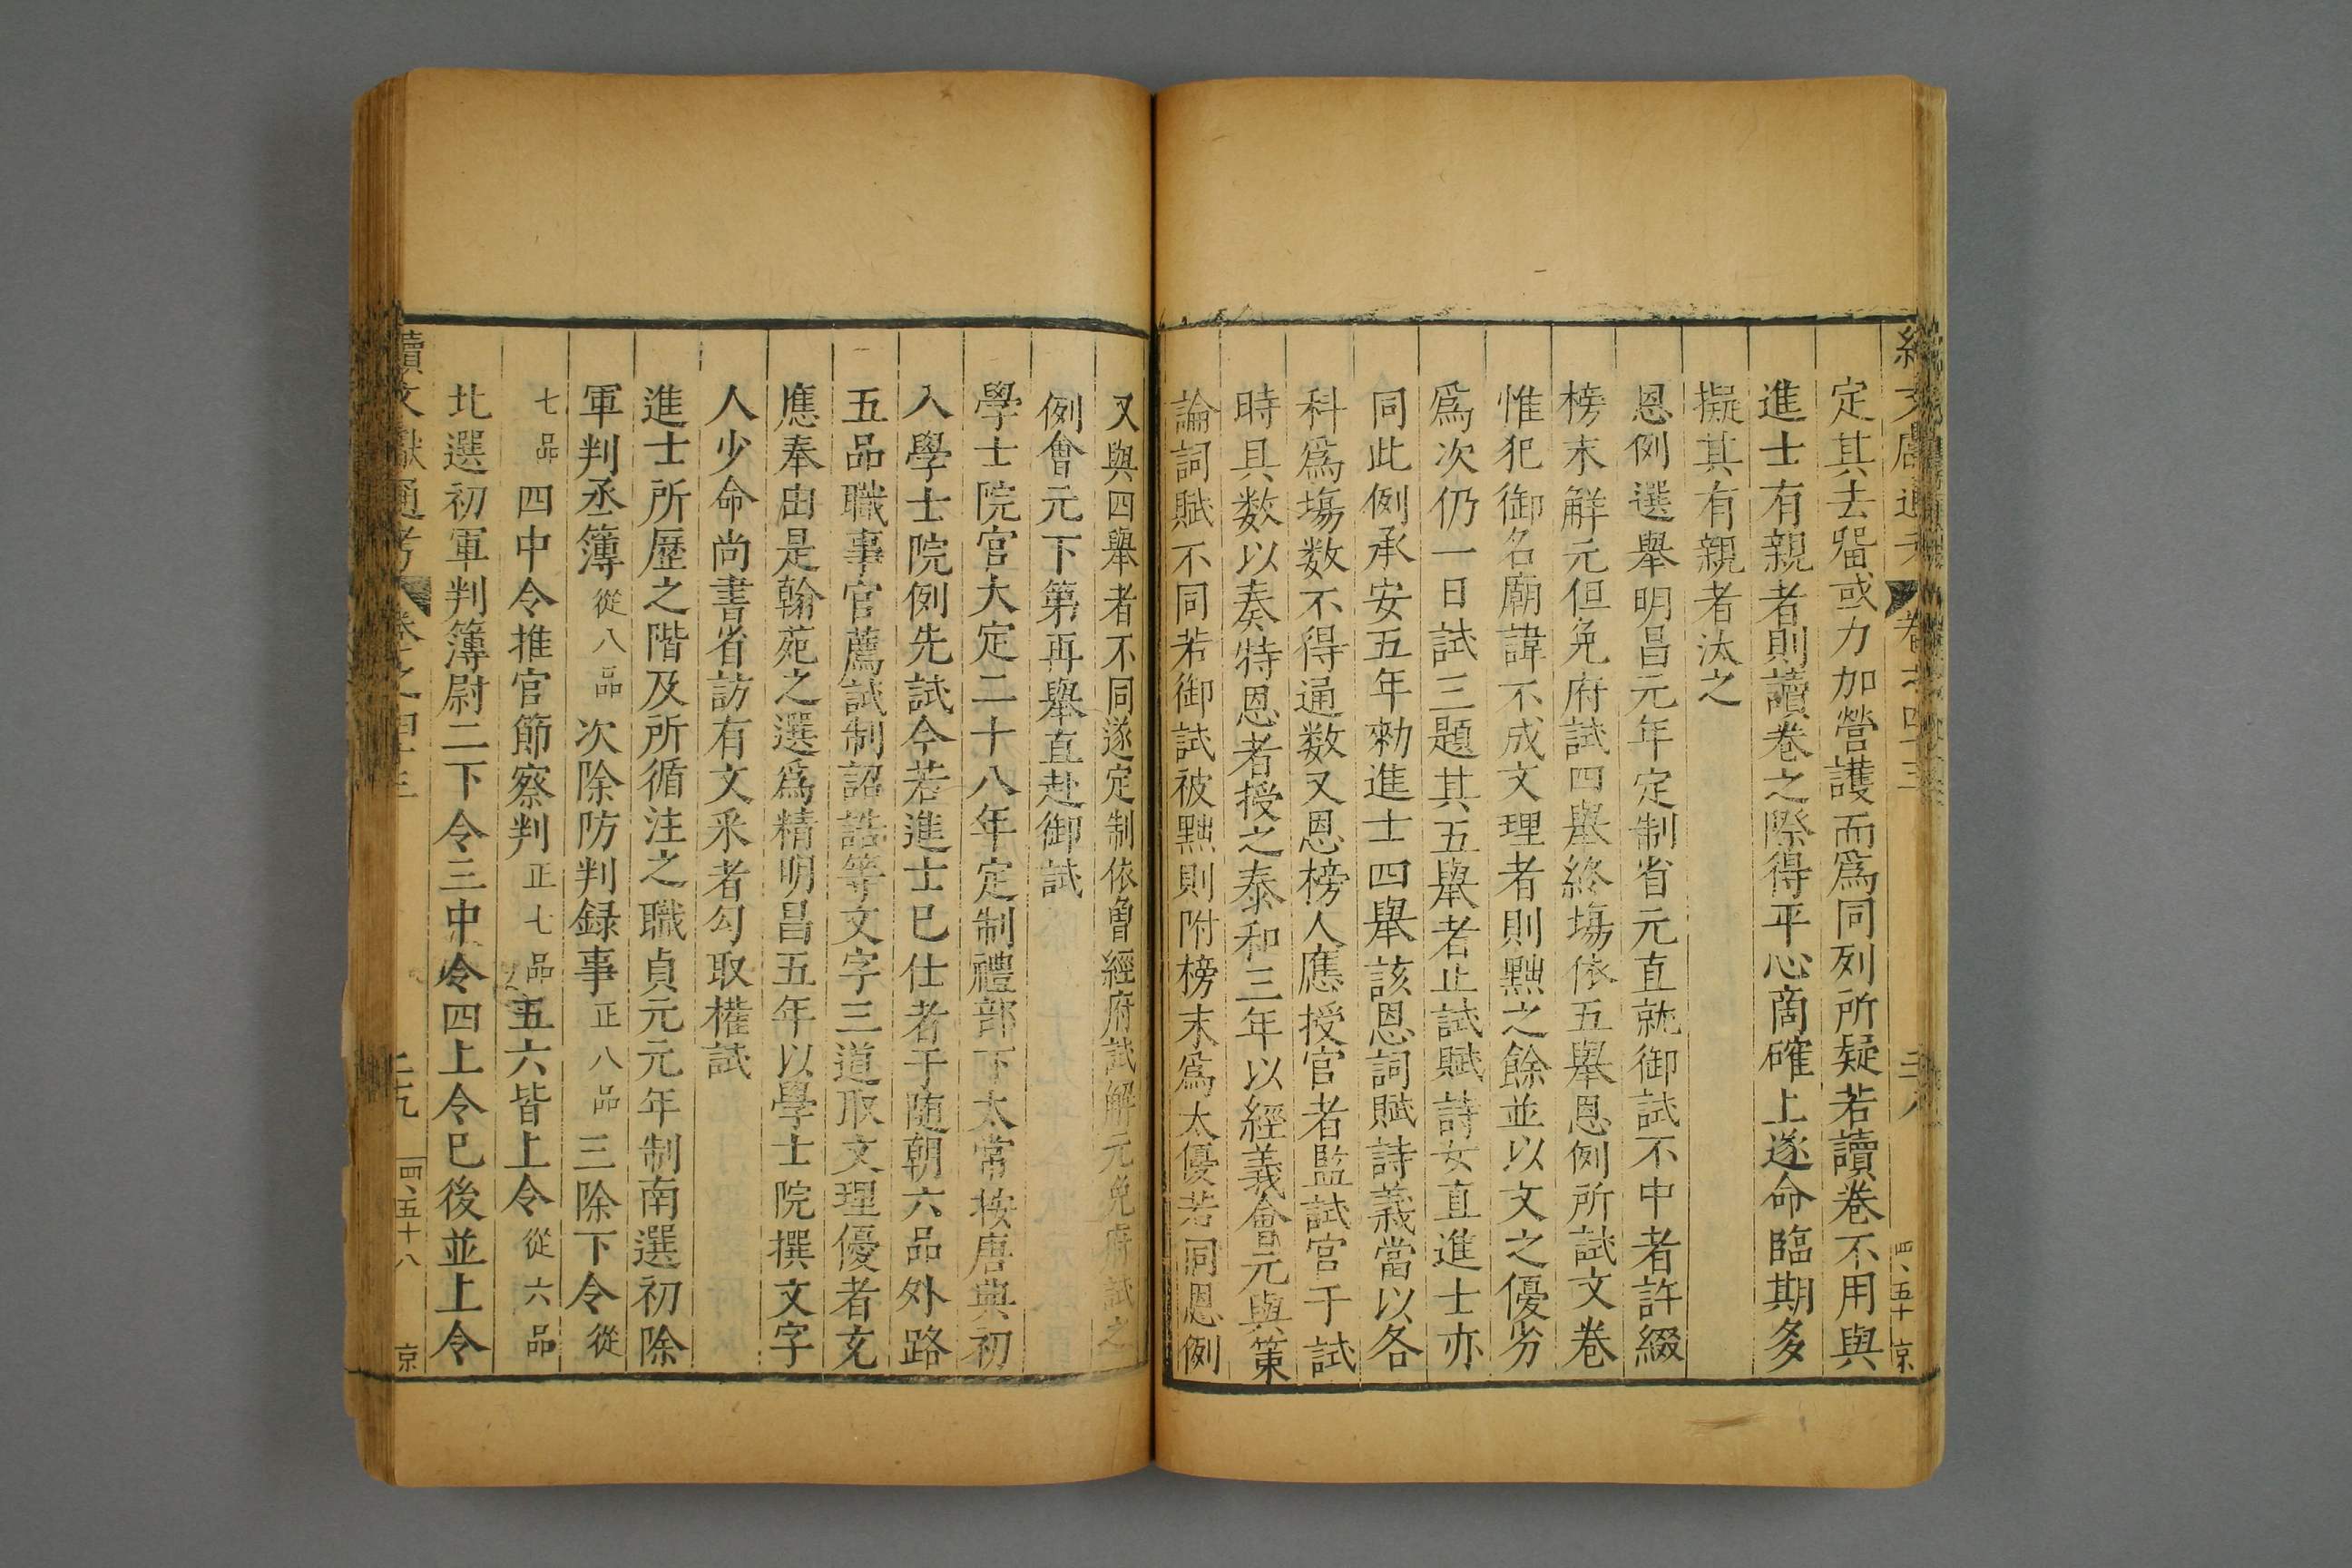 定其去畱或力加營護而爲同列所疑若讀卷不用與
進士有親者則讀卷之際得平心商確上遂命臨期多
擬其有親者汰之
恩例選舉明昌元年定制省元直就御試不中者許綴
榜末解元但免府試四舉終場依五舉恩例所試文卷
惟犯御名廟諱不成文理者則黜之餘並以文之優劣
爲次仍一日試三題其五舉者止試賦詩女直進士亦
同此例承安五年勑進士四舉該恩詞賦詩義當以各
科爲塲数不得通数又恩榜人應授官者監試官于試
時具数以奏特恩者授之泰和三年以經義會元與策
論詞賦不同若御試被黜則附榜末爲太優若同恩例
又與四舉者不同遂定制依魯經府試解元免府試之
例會元下第再舉直赴御試
學士院官大定二十八年定制禮部下太常按唐典初
入學士院例先試今若進士已仕者于随朝六品外路
五品職事官薦試制詔誥等文字三道取文理優者充
應奉由是翰苑之選爲精明昌五年以學士院撰文字
人少命尚書省訪有文釆者勾取權試
進士所歷之階及所循注之職貞元元年制南選初除
軍判丞簿從八品次除防判録事正八品三除下令從
七品四中令推官節察判正七品五六皆上令從六品
北選初軍判簿尉二下令三中令四上令已後並上令
續文獻通考 卷之四十三
四、五十八 京